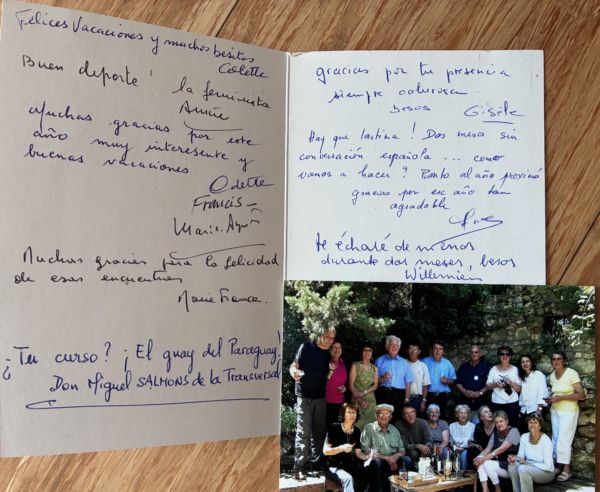 Felices Vacaciones y muchos besitos
Colette
Buen deporte!
la feminista
Année
Muchas gracias por este
año muy interesente y
buenas vacaciones
Odette
Francis-
Marie-Agnès
Muchas gracias para la felicidad
de esos encuentros
Marie France.
¿Tu curso? ¡El guay del Paraguay!
Don Miguel SALMONS de la Transversal
gracias por tu presencia
siempre calurosa
besos
Gisèle
Hay que lastima! Dos meses sin
conversación española ... como
vamos a hacer? Ponto al año proximó
gracias por ese año tan
agradable
te écharé de menos
durante dos meses, besos
Willemien